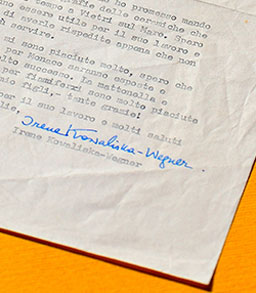 ho promesso mando
rafie di ceramiche che
tempo a Vietri sul Mare. Spero
no essere utile per il suo lavoro e
di averle rispedite appena che non
servire.
mi sono piaciute molto, spero che
per Monaco saranno esposte e
lto successo. La mattonella e
per fiammiferi sono molto piaciute
io figli,- tante grazie!
per il suo lavoro e molti saluti
lie,
Irene Kowaliska-Wegner
Irene Kowaliska-Wegner